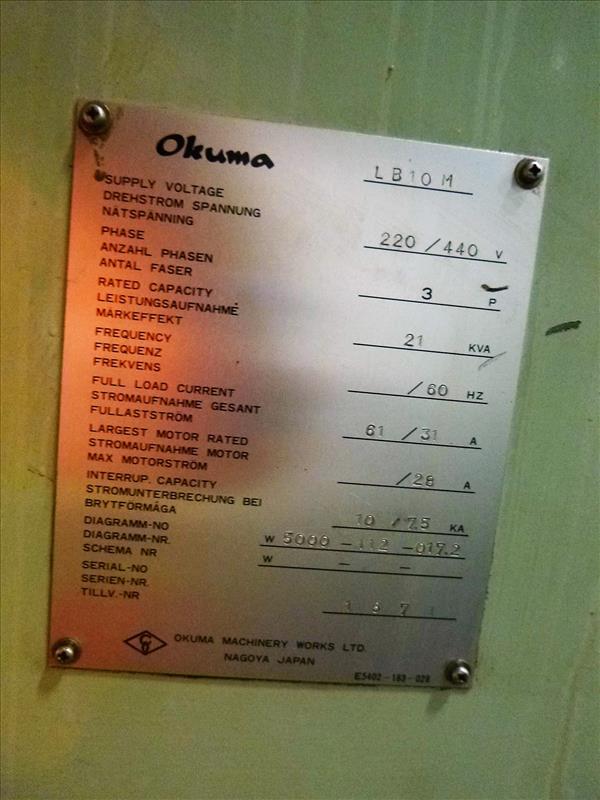 Okuma
LB10M
SUPPLY VOLTAGE
DREHSTROM SPANNUNG
NÄTSPÄNNING
220 / 440 V
PHASE
ANZAHL PHASEN
ANTAL FASER
3 P
RATED CAPACITY
LEISTUNGSAUFNAHME
MÄRKEFFEKT
21 KVA
FREQUENCY
FREQUENZ
FREKVENS
/ 60 HZ
FULL LOAD CURRENT
STROMAUFNAHME GESANT
FULLASTSTRÖM
61 / 31 A
LARGEST MOTOR RATED
STROMAUFNAHME MOTOR
MAX MOTORSTRÖM
/ 28 A
INTERRUP. CAPACITY
STROMUNTERBRECHUNG BEI
BRYTFÖRMÅGA
10 / 7.5 KA
DIAGRAMM-NO
DIAGRAMM-NR.
SCHEMA NR
W 5000 - 112 - 017.2
W - -
SERIAL-NO
SERIEN-NR.
TILLV.-NR
OKUMA MACHINERY WORKS LTD.
NAGOYA JAPAN
E5402-183-028